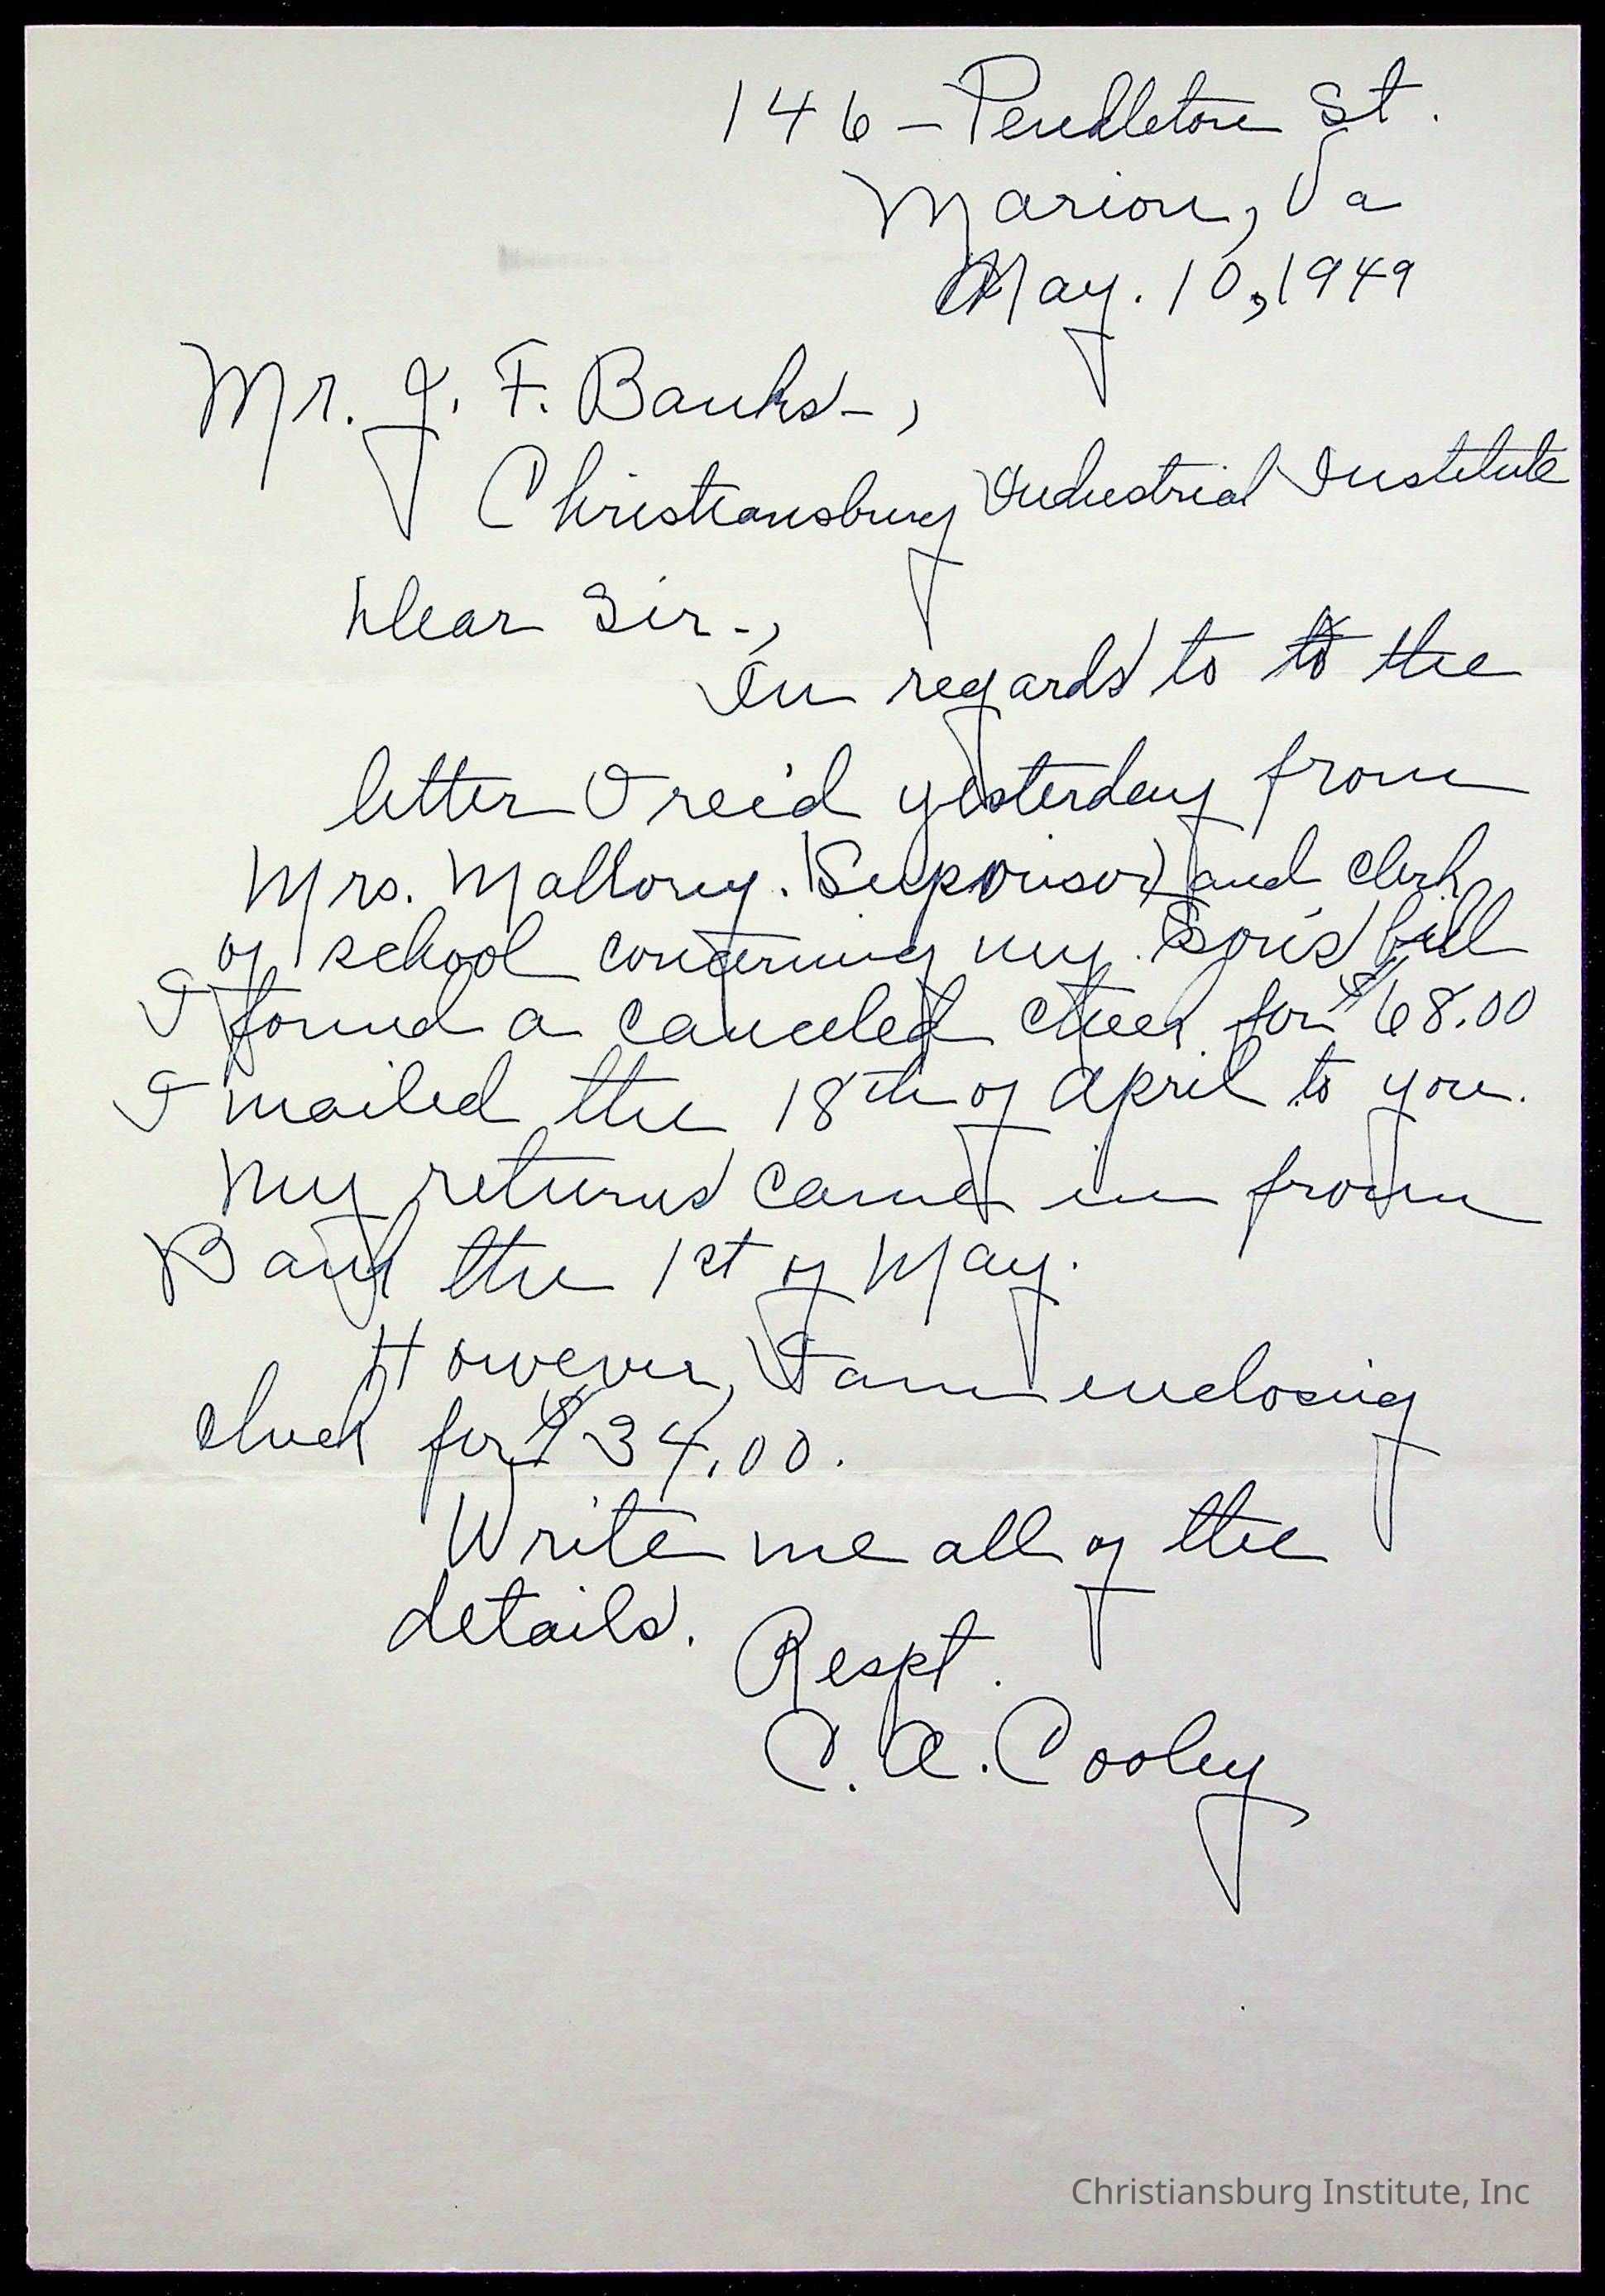 146 - Pendleton St.
Marion, Va
May. 10, 1949
Mr. J. F. Banks-,
Christiansburg Industrial Institute
Dear Sir-,
In regards to to the
letter I rec'd yesterday from
Mrs. Mallory. (Supervisor) and clerk
of school concerning my. Son's bill
I found a canceled check for $68.00
I mailed the 18th of April to you.
My returns came in from
Bank the 1st of May.
However, I am enclosing
check for $34.00.
Write me all of the
details.
Respt.
C. A. Cooley
Christiansburg Institute, Inc